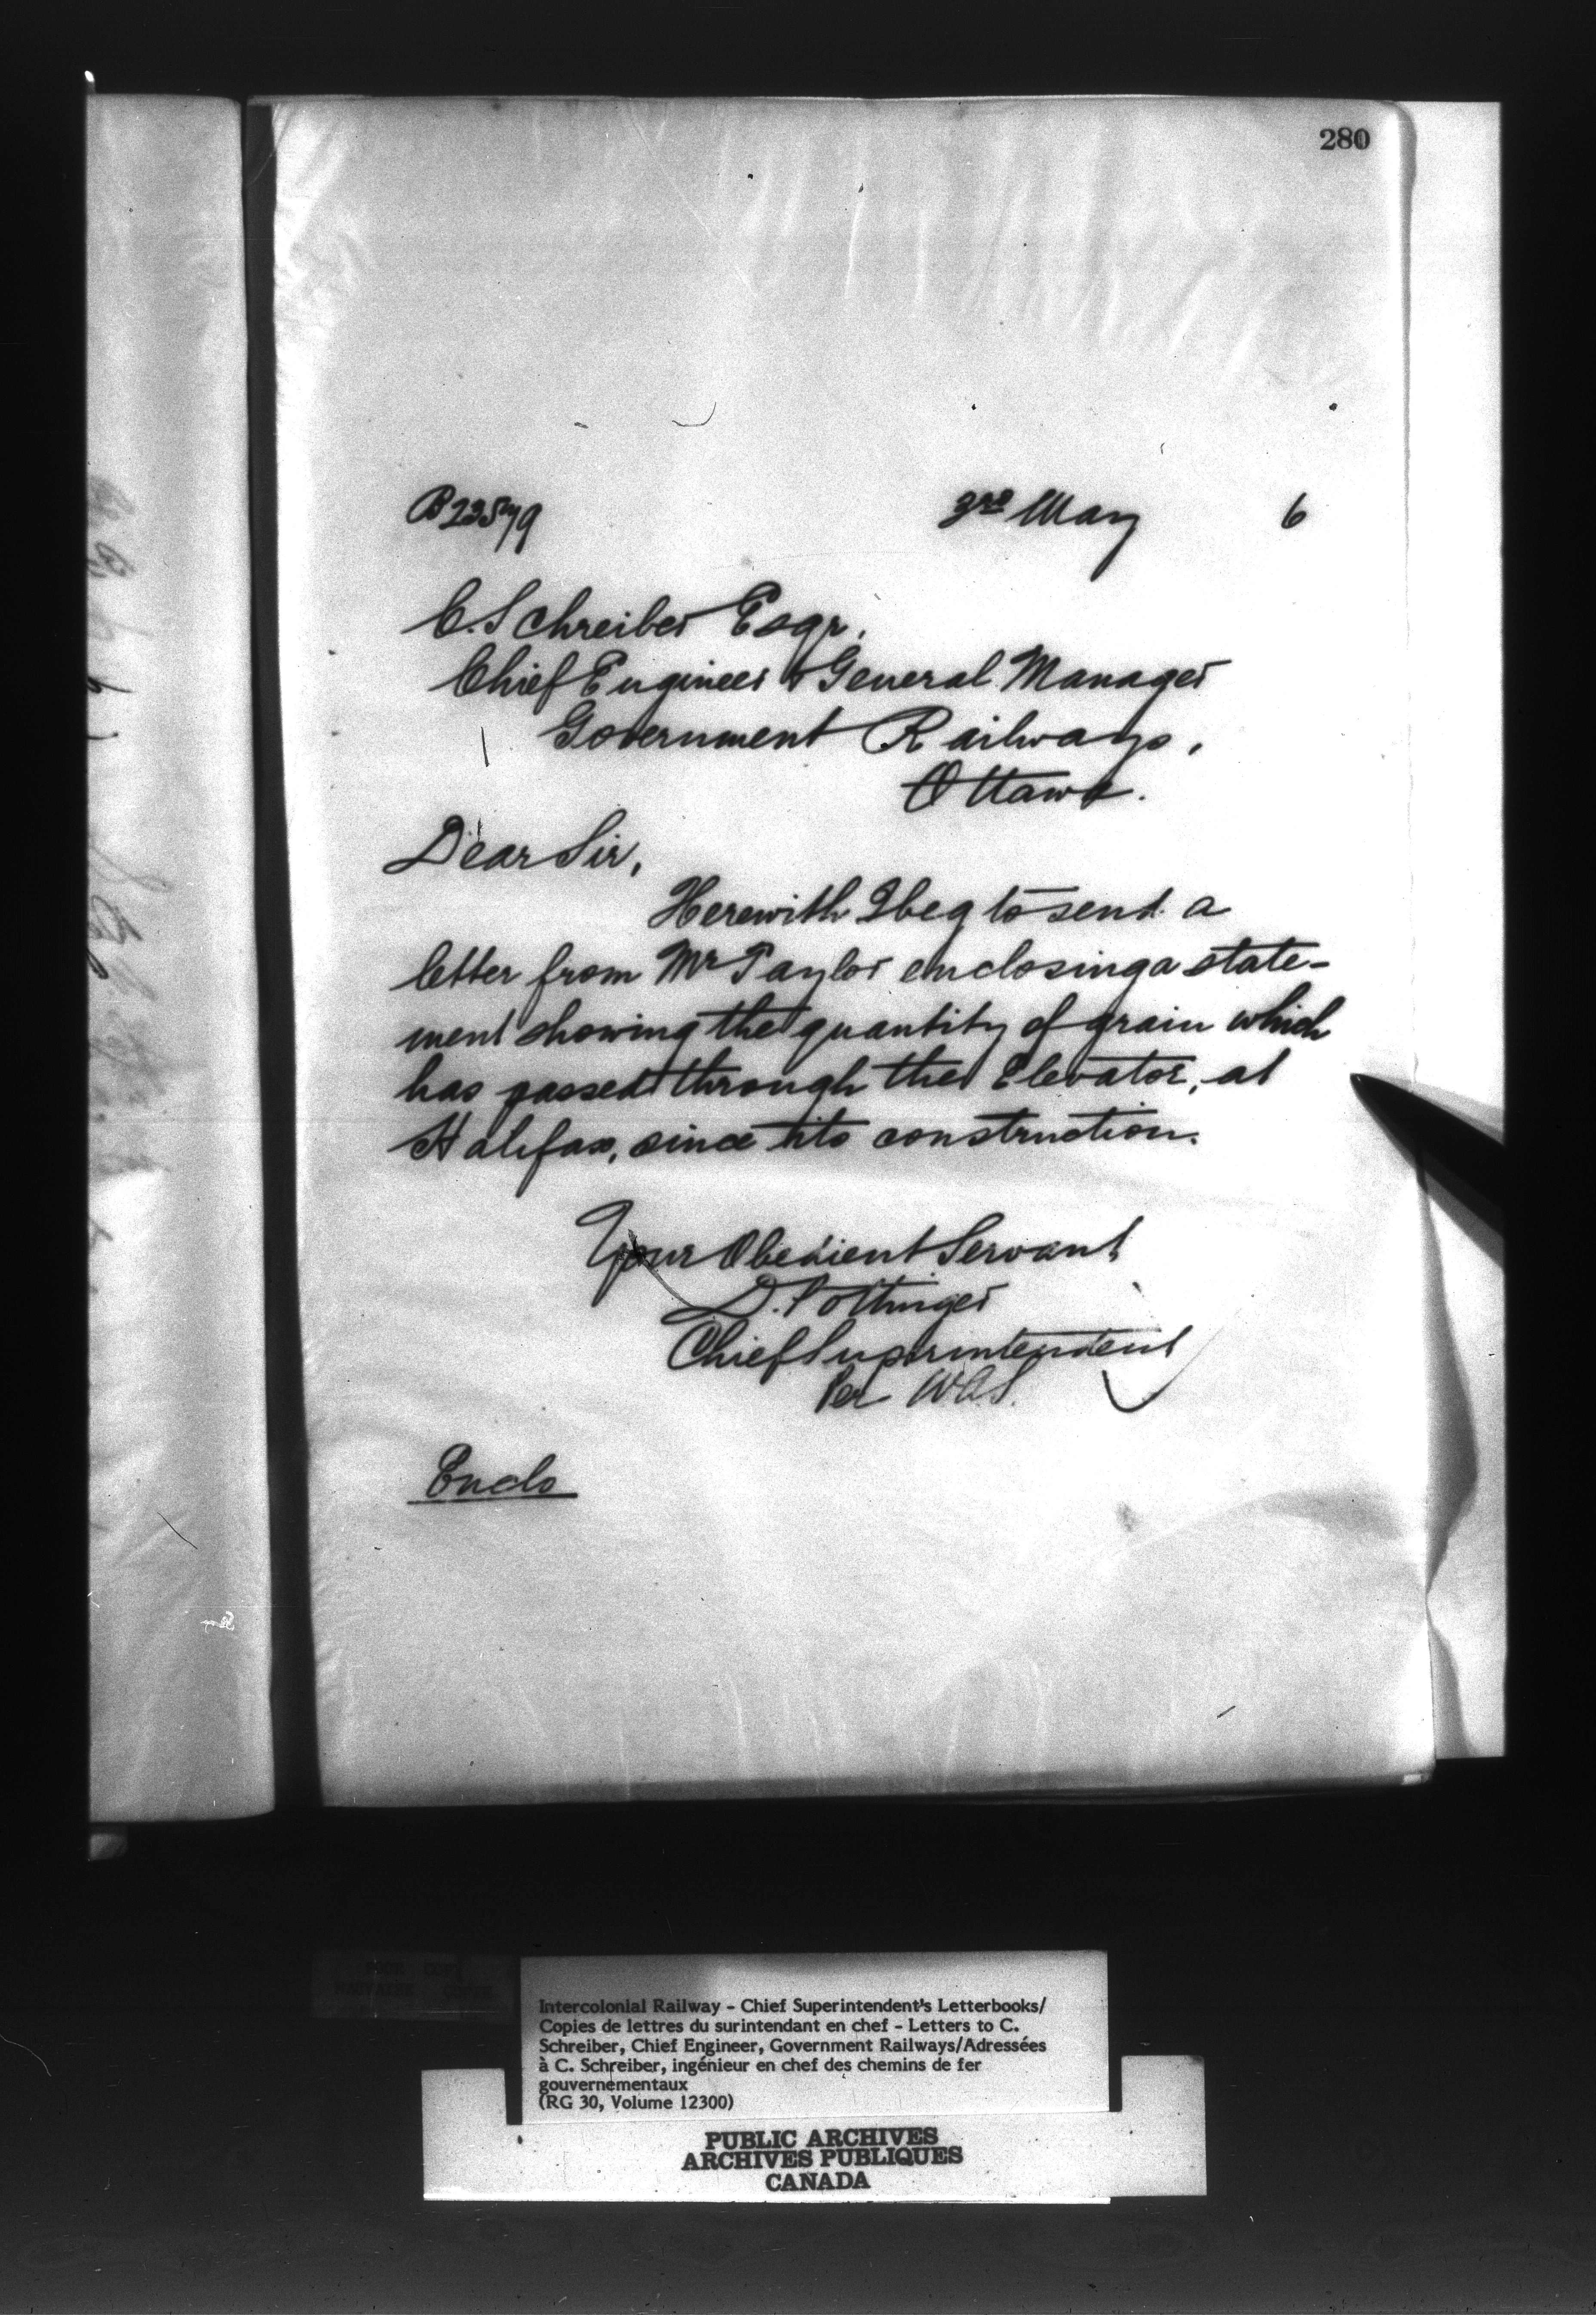 280
B22579
3rd May 6
C. Schreiber Esqr.
Chief Engineer & General Manager
Government Railways,
Ottawa.
Dear Sir,
Herewith I beg to send a
letter from Mr Taylor enclosing a state-
ment showing the quantity of grain which
has passed through the Elevator, at
Halifax, since its construction.
Your Obedient Servant
D. Pottinger
Chief Superintendent
Per WAS.
Enclo
Intercolonial Railway - Chief Superintendent's Letterbooks/
Copies de lettres du surintendant en chef - Letters to C.
Schreiber, Chief Engineer, Government Railways/Adressées
à C. Schreiber, ingénieur en chef des chemins de fer
gouvernementaux
(RG 30, Volume 12300)
PUBLIC ARCHIVES
ARCHIVES PUBLIQUES
CANADA